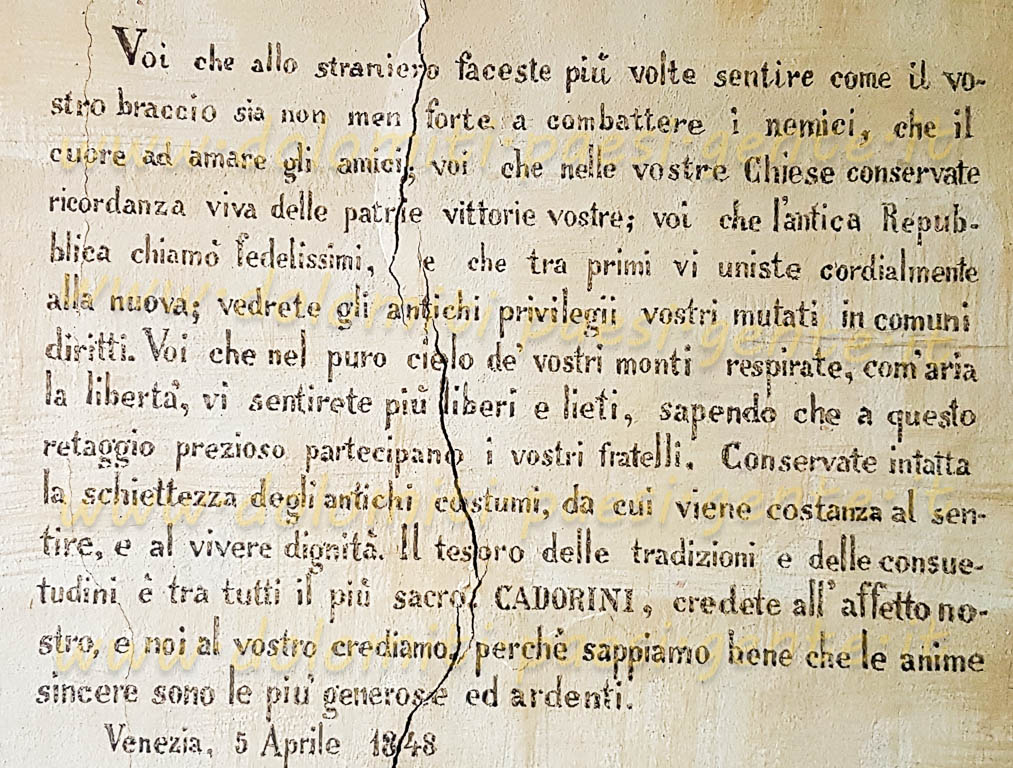 Voi che allo straniero faceste più volte sentire come il vo-
stro braccio sia non men forte a combattere i nemici, che il
cuore ad amare gli amici; voi che nelle vostre Chiese conservate
ricordanza viva delle patrie vittorie vostre; voi che l'antica Repub-
blica chiamò fedelissimi, e che tra primi vi uniste cordialmente
alla nuova; vedrete gli antichi privilegii vostri mutati in comuni
diritti. Voi che nel puro cielo de' vostri monti respirate, com'aria
la libertà, vi sentirete più liberi e lieti, sapendo che a questo
retaggio prezioso partecipano i vostri fratelli. Conservate intatta
la schiettezza degli antichi costumi, da cui viene costanza al sen-
tire, e al vivere dignità. Il tesoro delle tradizioni e delle consue-
tudini è tra tutti il più sacro. CADORINI, credete all'affetto no-
stro, e noi al vostro crediamo, perchè sappiamo bene che le anime
sincere sono le più generose ed ardenti.
Venezia, 5 Aprile 1848
www.dolomiti-paesi-gente.it
www.dolomiti-paesi-gente.it
www.dolomiti-paesi-gente.it
www.dolomiti-paesi-gente.it